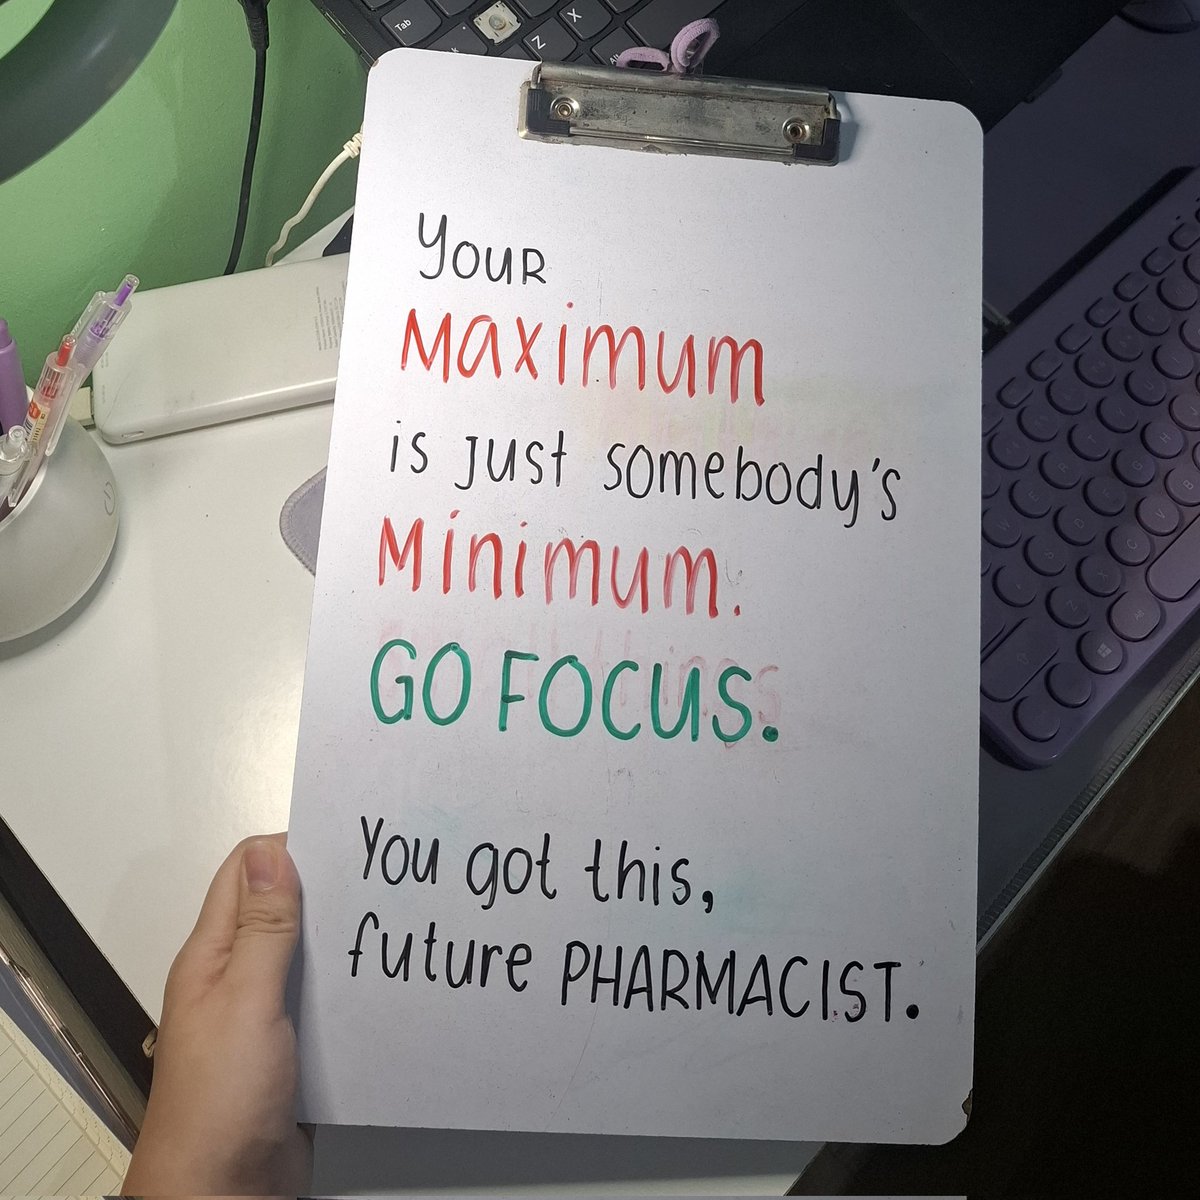 Your
Maximum
is just somebody's
Minimum.
GO FOCUS.
You got this,
future PHARMACIST.
Tab
Z
X